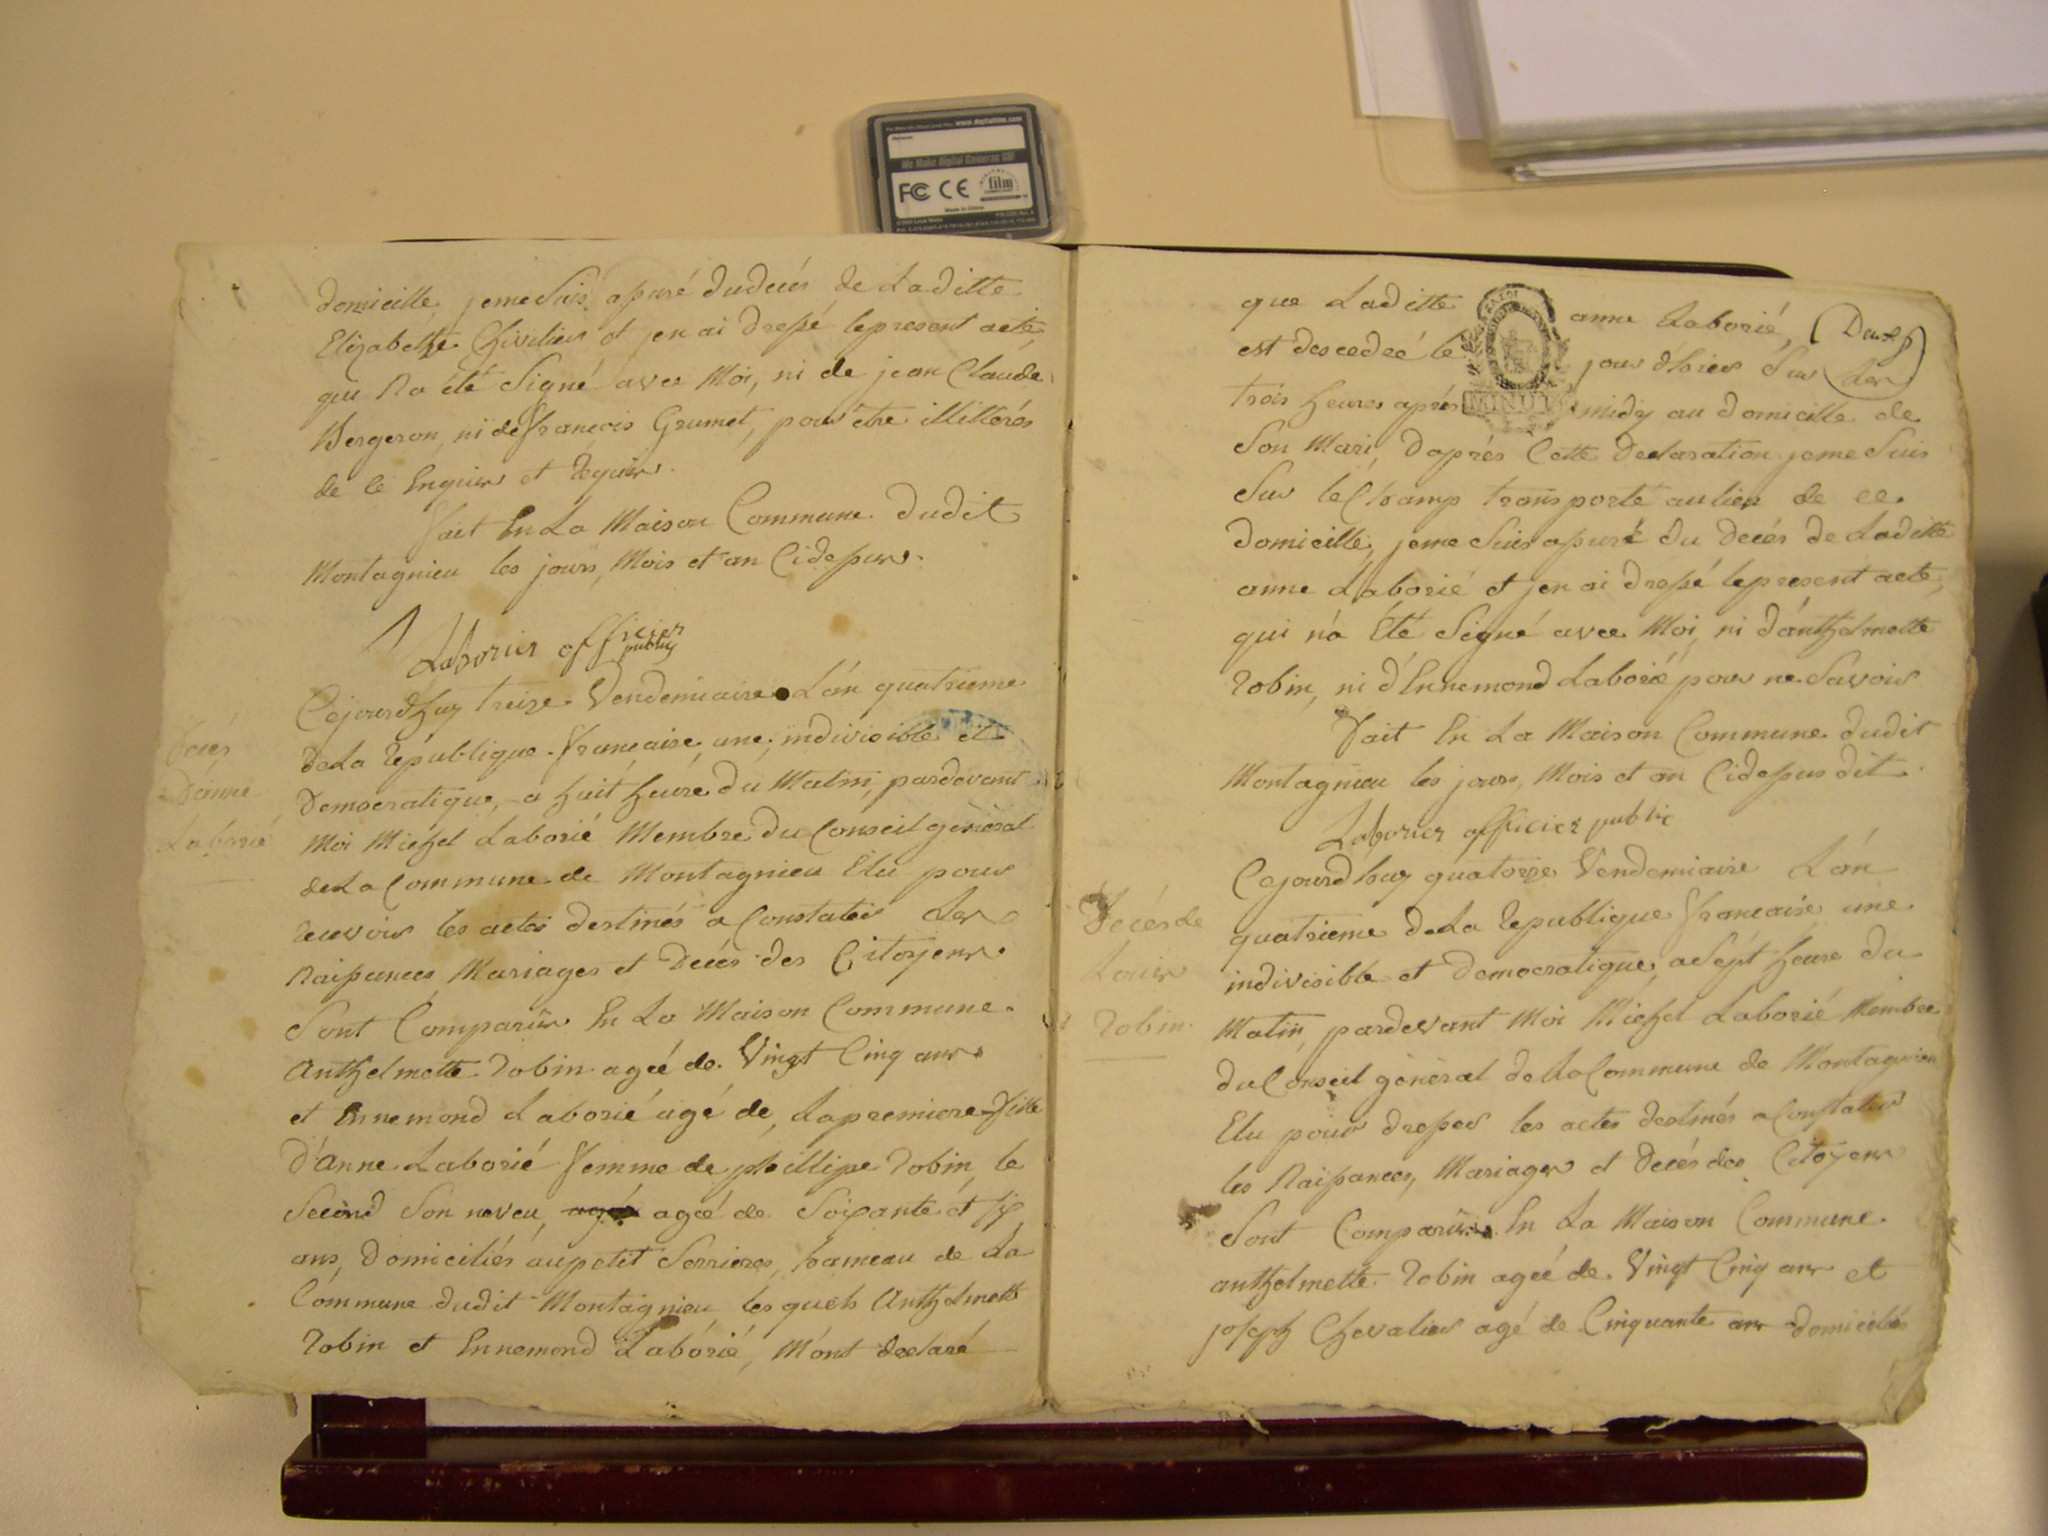 www.digitalfilm.com
We Make Digital Cameras GO!
FC CE film
Made in China
domicille, jeme suis assuré du decés de Laditte
Elizabethe Chivilier et jen ai dressé le present acte,
qui Na été Signé avec Moi, ni de jean Claude
Bergeron, ni de françois Grumet, pour être illittérés
de ce Enquier et Requier.
fait En La Maison Commune dudit
Montagnieu les jours, Mois et an Cidessur.
Laborier officier
public
Décés
D'anne
Laborié
Cejourdhuy treize Vendemiaire L'an quatrieme
de La Republique française, une, indivisible et
Democratique, a huit heure du Matin, pardevant
Moi Michel Laborié Membre du Conseil général
de La Commune de Montagnieu Elu pour
recevoir les actes destinés a Constater Les
Naissances, Mariages et Décés des Citoyens
Sont Comparüs En La Maison Commune
Anthelmette Robin ageé de Vingt Cinq ans
et Ennemond Laborié agé de, La premiere fille
D'anne Laborié femme de phillipe Robin, le
Second Son neveu, ageé de Soixante et six
ans, Domiciliés au petit Serrieres, hameau de La
Commune dudit Montagnieu, les quels Anthelmette
Robin et Ennemond Laborié, M'ont declaré
que Laditte anne Laborié,
est descedeé le jour d'hier Sur Les
trois heures aprés midy au domicille de
MINUTE
Son Mari, D'aprés Cette Declaration jeme Suis
Sur le Champ transporté au lieu de ce
domicille, jeme suis assuré du Decés de Laditte
anne Laborié et jen ai dressé le present acte,
qui n'a Eté Signé avec Moi, ni d'anthelmette
Robin, ni d'Ennemond Laborié pour ne Savoir
fait En La Maison Commune dudit
Montagnieu les jours, Mois et an Cidessus dit.
Laborier officier public
Décés de
Louis
Robin.
Cejourdhuy quatorze Vendemiaire L'an
quatrieme de La Republique française une
indivisible et Democratique, a Sept heure du
Matin, pardevant Moi Michel Laborié Membre
du Conseil général de La Commune de Montagnieu
Elu pour dresser les actes destinés a Constater
les Naissances, Mariages et Decés des Citoyens
Sont Comparüs En La Maison Commune
anthelmette Robin ageé de Vingt Cinq ans et
joseph Chevalier agé de Cinquante ans domiciliés